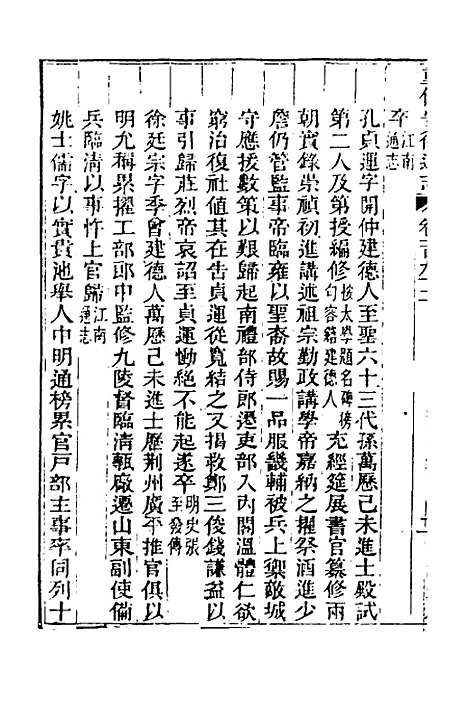 卒江南通志
孔貞運字開仲建德人至聖六十三代孫萬歷己未進士殿試
第二人及第授編修按太學題名碑榜句容籍建德人充經筵展書官纂修兩
朝實錄崇禎初進講述祖宗勤政講學帝嘉納之擢祭酒進少
詹仍管監事帝臨雍以聖裔故賜一品服畿輔被兵上禦敵城
守應援數策以艱歸起南禮部侍郎遷吏部入內閣溫體仁欲
窮治復社值其在告貞運從寬結之又揭救鄭三俊錢謙益以
事引歸莊烈帝哀詔至貞運慟絕不能起遂卒明史張至發傳
徐廷宗字季曾建德人萬歷己未進士歷荊州廣平推官俱以
明允稱累擢工部郎中監修九陵督臨清甎廠遷山東副使備
兵臨清以事忤上官歸江南通志
姚士儒字以實貴池舉人中明通榜累官戶部主事卒同列十